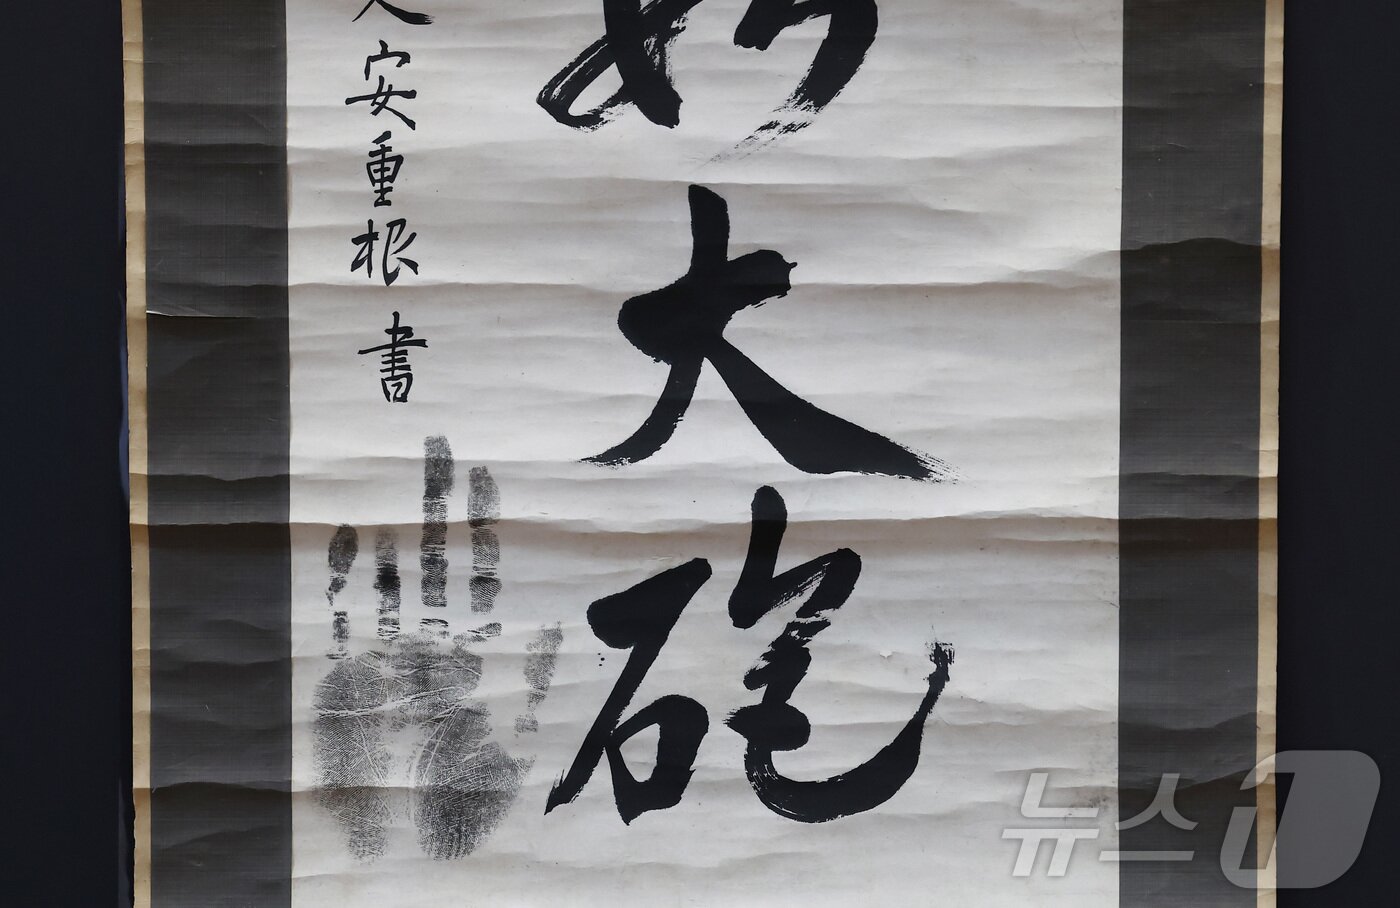 大砲
人安重根書
뉴스1